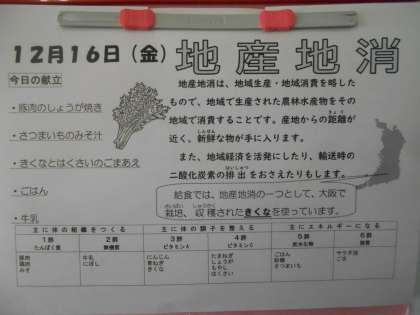 12月16日（金）
地産地消
今日の献立
・豚肉のしょうが焼き
・さつまいものみそ汁
・きくなとはくさいのごまあえ
・ごはん
・牛乳
地産地消は、地域生産・地域消費を略した
もので、地域で生産された農林水産物をその
地域で消費することです。産地からの距離が
近く、新鮮な物が手に入ります。
また、地域経済を活発にしたり、輸送時の
二酸化炭素の排出をおさえたりもします。
給食では、地産地消の一つとして、大阪で
栽培、収穫されたきくなを使っています。
主に体の組織をつくる
主に体の調子を整える
主にエネルギーになる
1群 2群 3群 4群 5群 6群
たんぱく質 無機質 ビタミンA ビタミンC 炭水化物 脂質
豚肉 牛乳 にんじん たまねぎ ごはん サラダ油
鶏肉 にぼし 青ねぎ しょうが 砂糖 ごま
みそ きくな もやし さつまいも
はくさい